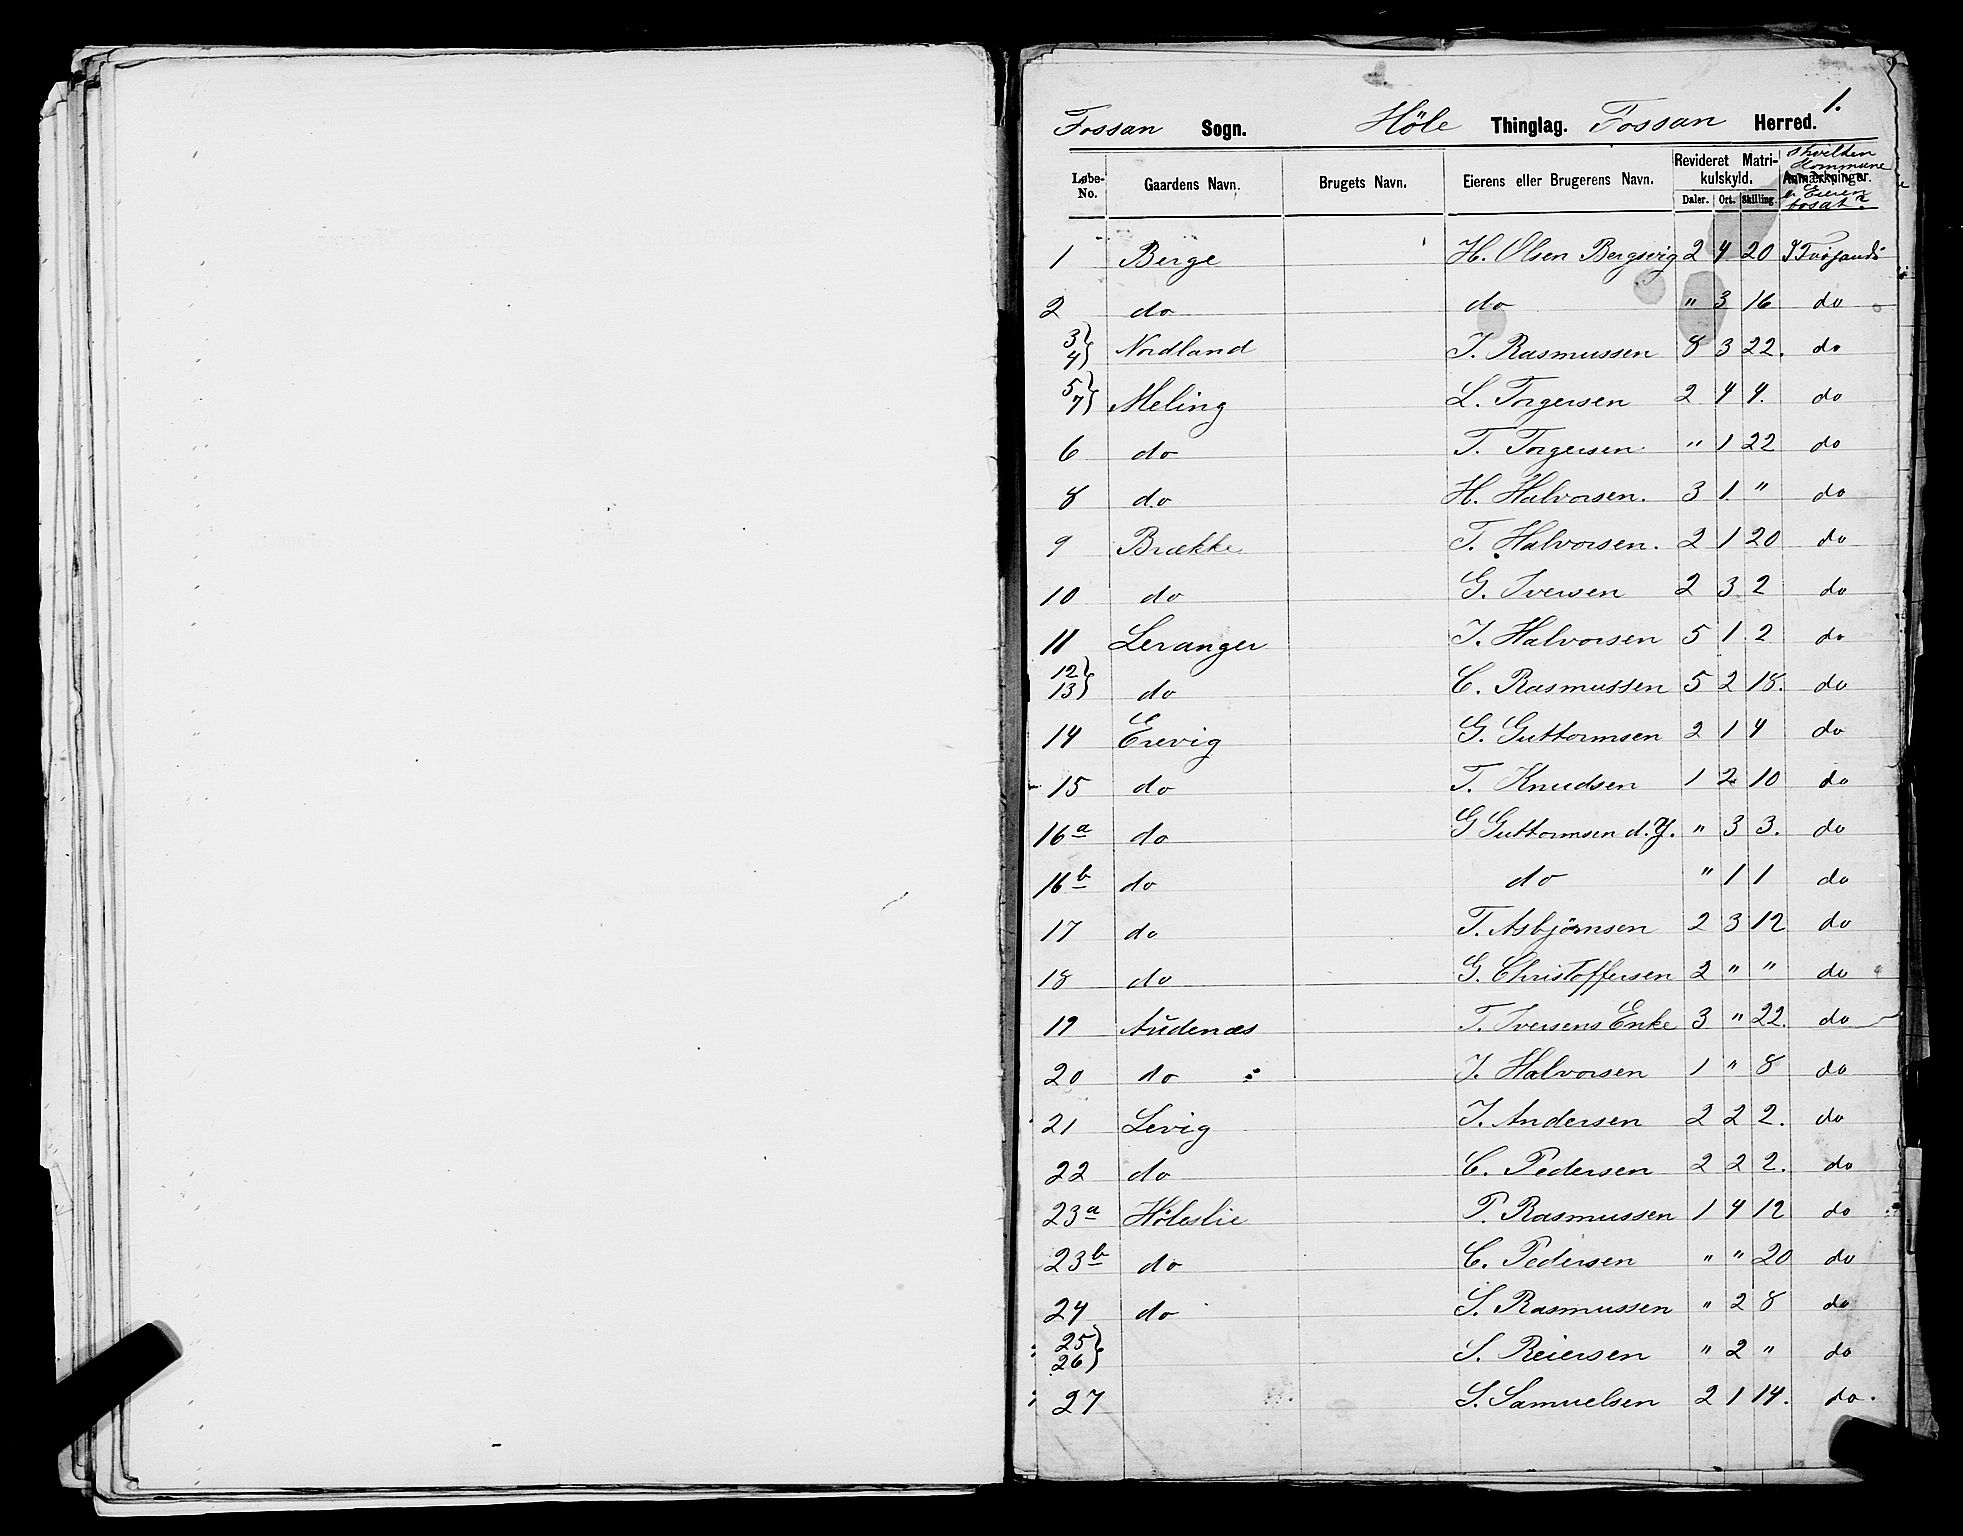 1.
Fossan Sogn. Høle Thinglag. Fossan Herred.
Løbe-No. Gaardens Navn. Brugets Navn. Eierens eller Brugerens Navn. Revideret Matrikulskyld. Daler. Ort. Skilling. Anmærkninger. I hvilken Kommune er Eieren bosat?
1 Berge H. Olsen Bergsvig 2 4 20
2 do do " 3 16 do
3/4} Nordland J. Rasmussen 8 3 22. do
5/7} Meling L. Torgersen 2 4 4. do
6 do T. Torgersen " 1 22 do
8 do H. Halvorsen. 3 1. " do
9 Brække T. Halvorsen. 2 1 20 do
10 do G. Iversen 2 3 2 do
11 Leranger J. Halvorsen 5 1 2 do
12/13} do C. Rasmussen 5 2 18. do
14 Erevig G. Guttormsen 2 1 4 do
15 do T. Knudsen 1 2 10 do
16 a do G Guttormsen d.Y. " 3 3. do
16 b do do " 1 1 do
17 do T. Asbjørnsen 2 3 12 do
18 do G. Christoffersen 2 " " do
19 Audenæs T. Iversens Enke 3 " 22. do
20 do J. Halvorsen 1 " 8 do
21 Levig J. Andersen 2 2 2. do
22 do C. Pedersen 2 2 2. do
23 a Høleslie P. Rasmussen 1 4 12 do
23 b do C. Pedersen " " 20 do
24 do S. Rasmussen " 2 8 do
25/26} S. Reiersen " 2 " do
27 S. Samuelsen 2 1 14. do.